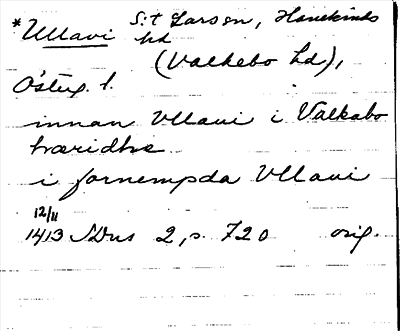 *Ullavi S:t Larson, Hanekinds
hd
(Valkebo hd),
Östug. l.
innan Vllaui i Valkabo
hæridhe
i fornempda Vllaui
12/11
1413 SDns 2, s. 720 orig.